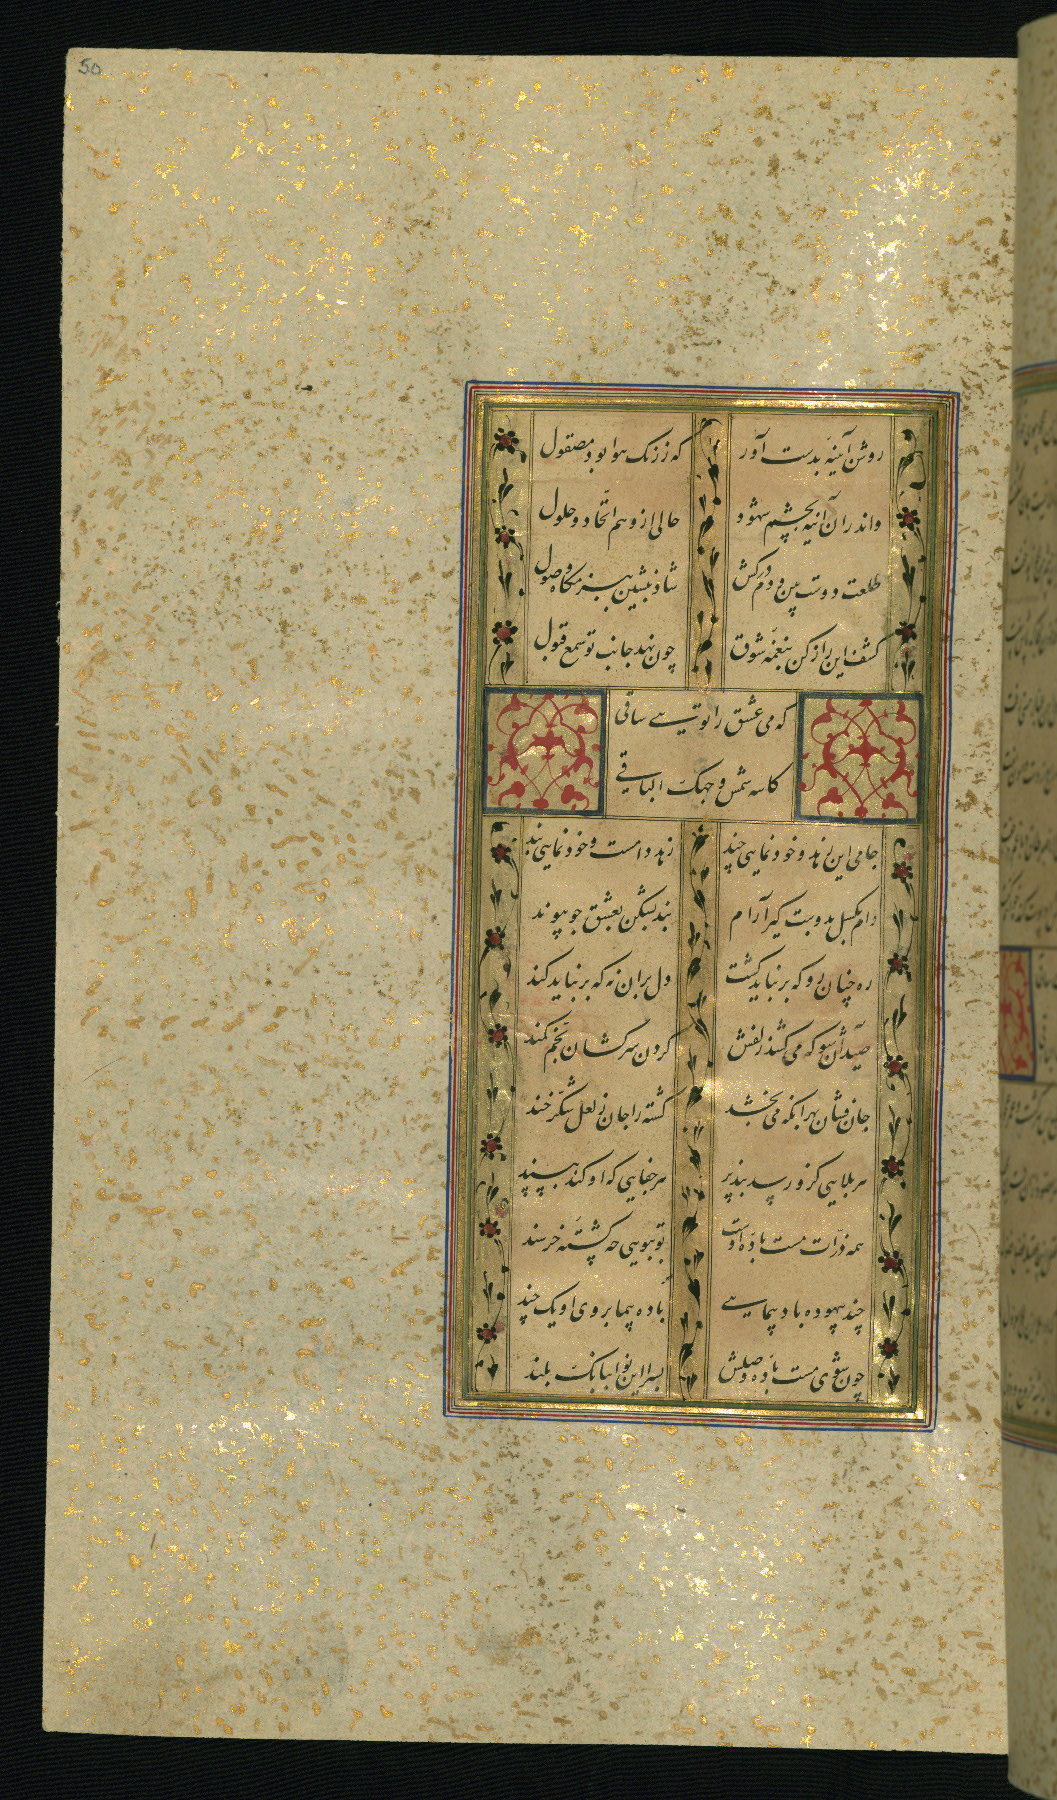 50
روشن آینهٔ بدست آور که ززنک هوا بود مصقول
واندران آینه بچشم شهود خالی از وهم اتحاد و حلول
طلعت دوست بین و دم درکش شاد بنشین ببزمکاه وصول
کشف این راز کن بنغمهٔ شوق چون نهد جانب تو سمع قبول
که می عشق را تویی ساقی
کاسه شمس وجهک الباقی
جامی این زهد و خودنمایی چند زهد دامست و خودنمایی بند
دام بکسل بدوست گیر آرام بند بشکن بعشق جو پیوند
ره چنان رو که بر نباید کشت دل بران نه که بر نباید کند
صید آن شو که می کشد زلفش کردن سرکشان بخم کمند
جان فشان بهر آنکه می بخشد کشته را جان ز لعل شکرخند
هر بلایی کزو رسد بپذیر هر جفایی که او کند بپسند
همه ذرات مست بادهٔ اوست تو ببویی چه کشتهٔ خرسند
چند بیهوده باد پیمایی باده پیما بروی او یک چند
چون شوی مست بادهٔ وصلش بسرا این نوا ببانک بلند